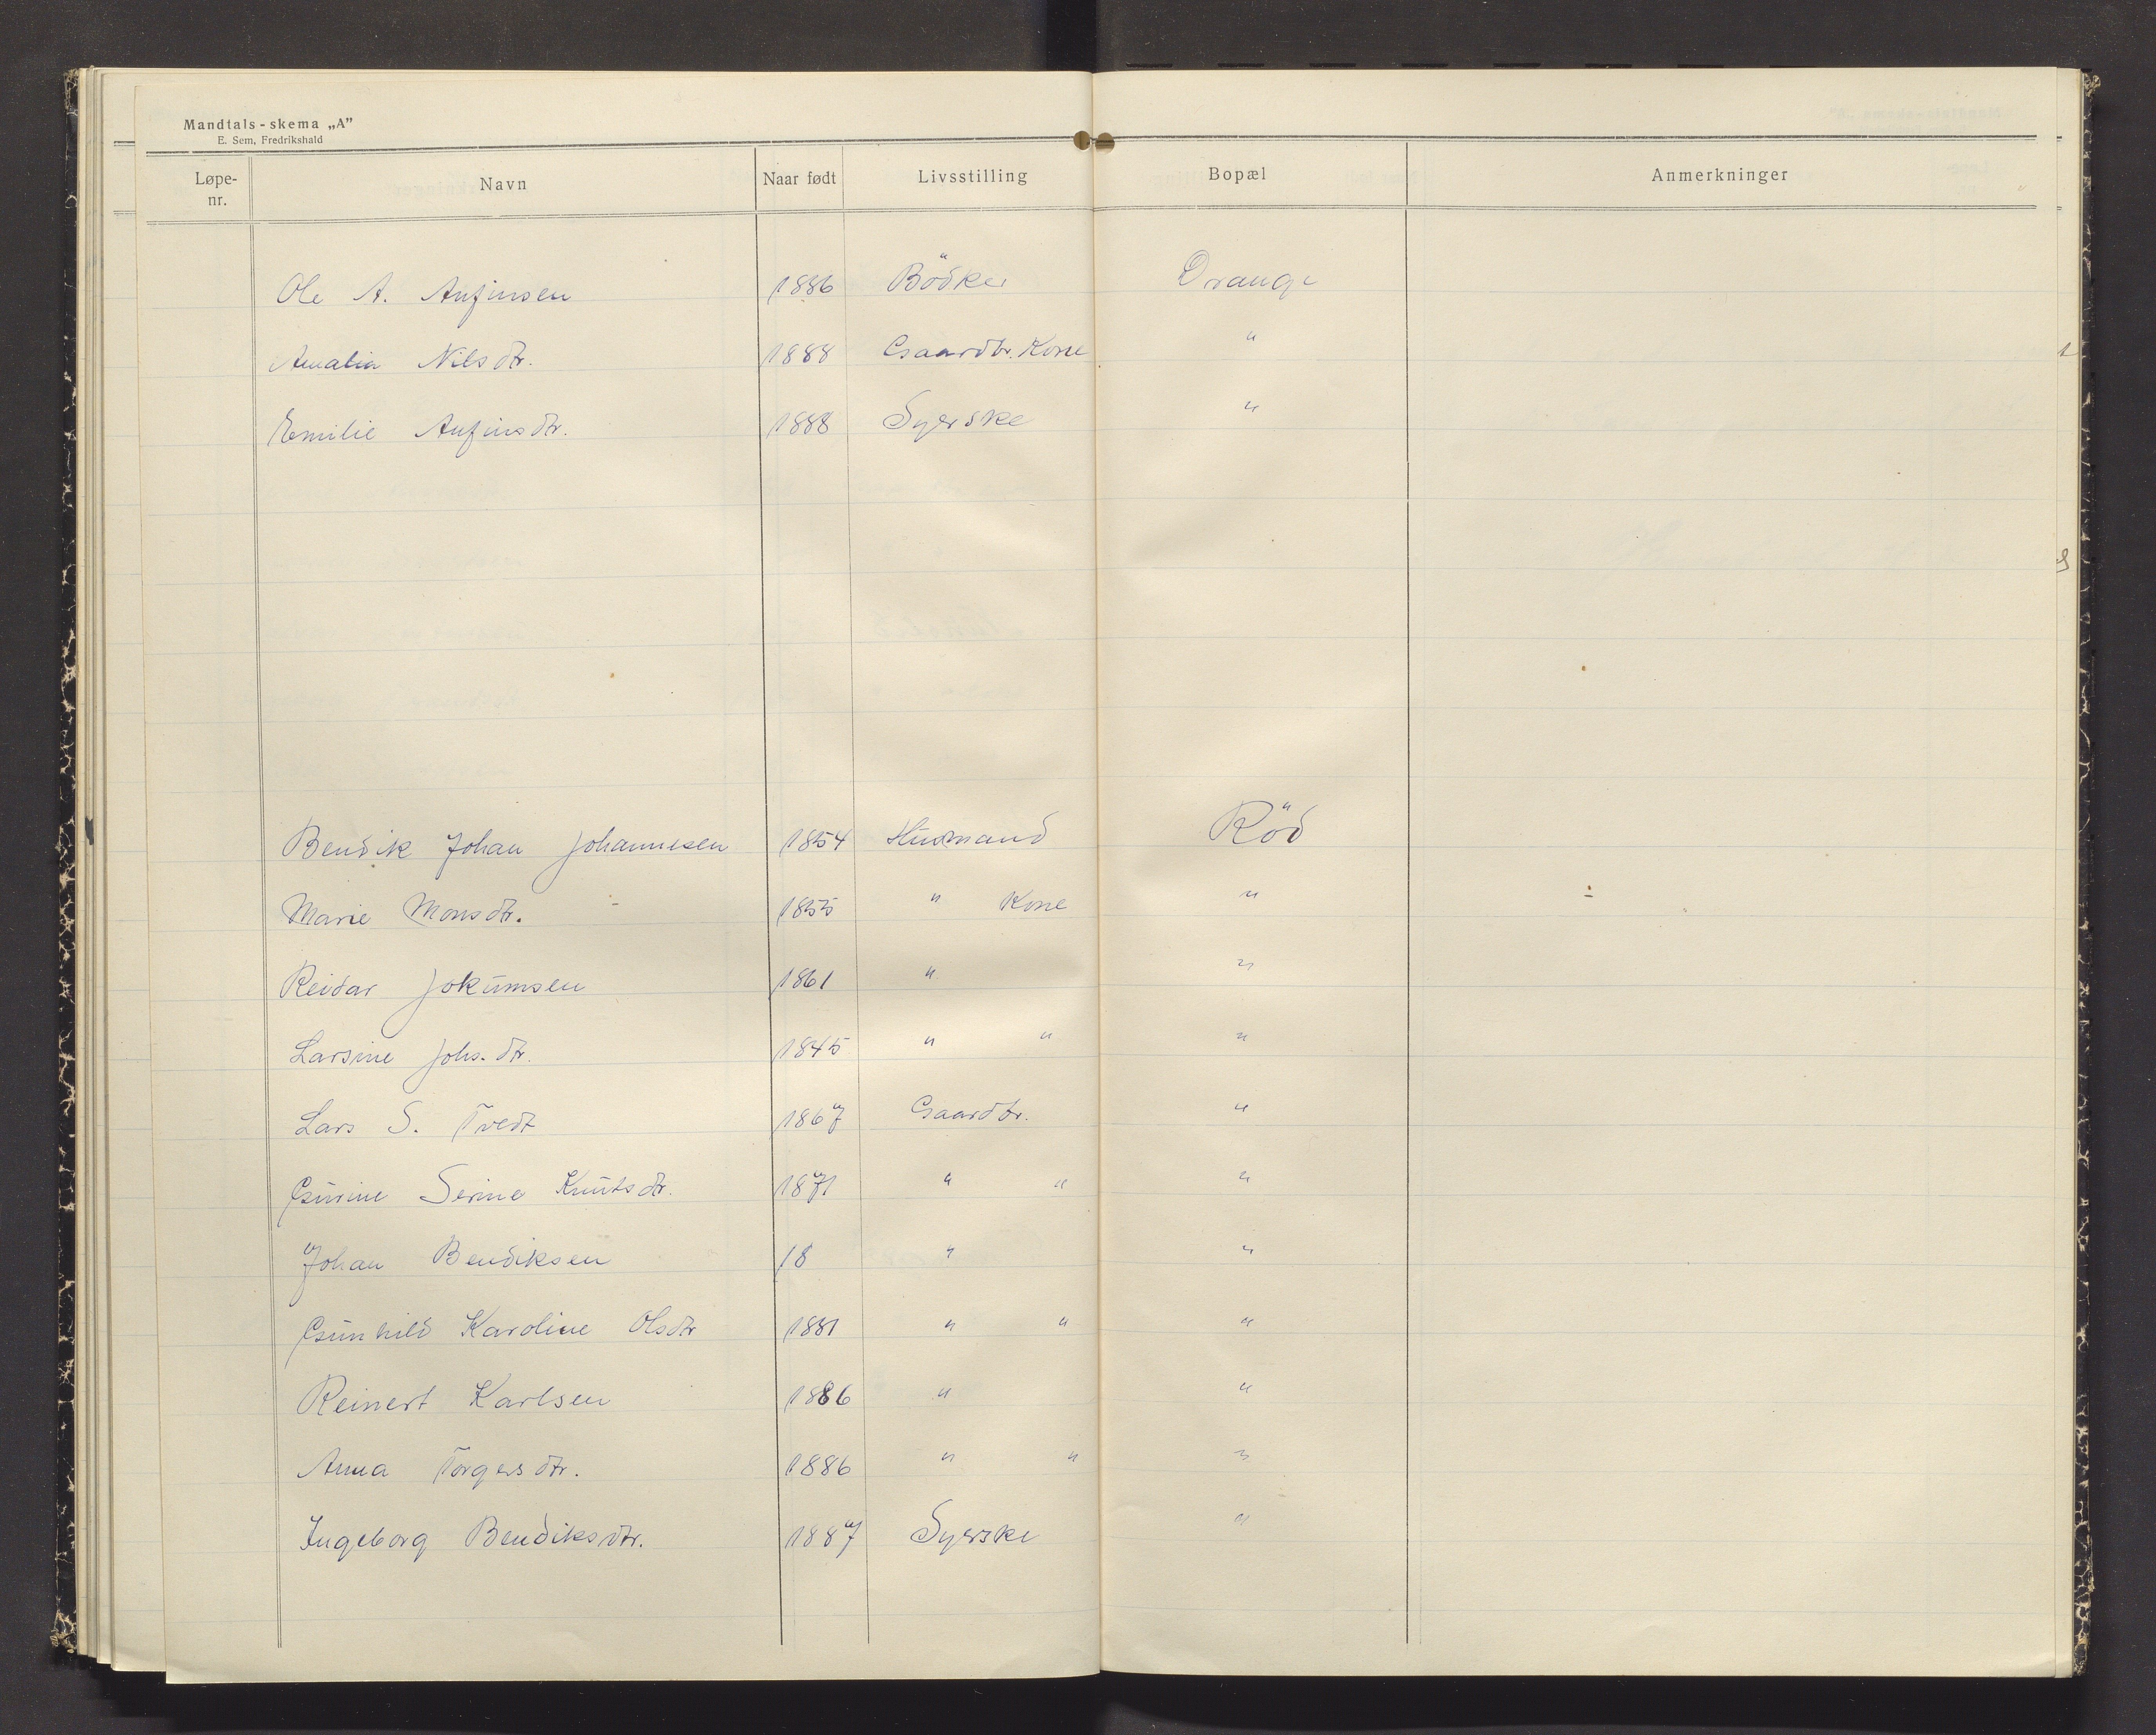 Mandtals-skema „A”
E. Sem, Fredrikshald
Løpe-nr. Navn Naar født Livsstilling Bopæl Anmerkninger
Ole A. Anfinsen 1886 Bödker Drange
Amalia Nilsdtr. 1888 Gaardbr. Kone "
Emilie Anfinsdtr. 1888 Syerske "
Bendik Johan Johannesen 1854 Husmand Röd
Marie Monsdtr. 1855 " Kone "
Reidar Jokumsen 1861 " "
Larsine Johs.dtr. 1845 " " "
Lars S. Tvedt 1867 Gaardbr. "
Gurine Serine Knutsdtr. 1871 " " "
Johan Bendiksen 18 " "
Gunhild Karoline Olsdtr 1881 " " "
Reinert Karlsen 1886 " "
Anna Torgersdtr. 1886 " " "
Ingeborg Bendiksdtr. 1887 Syerske "